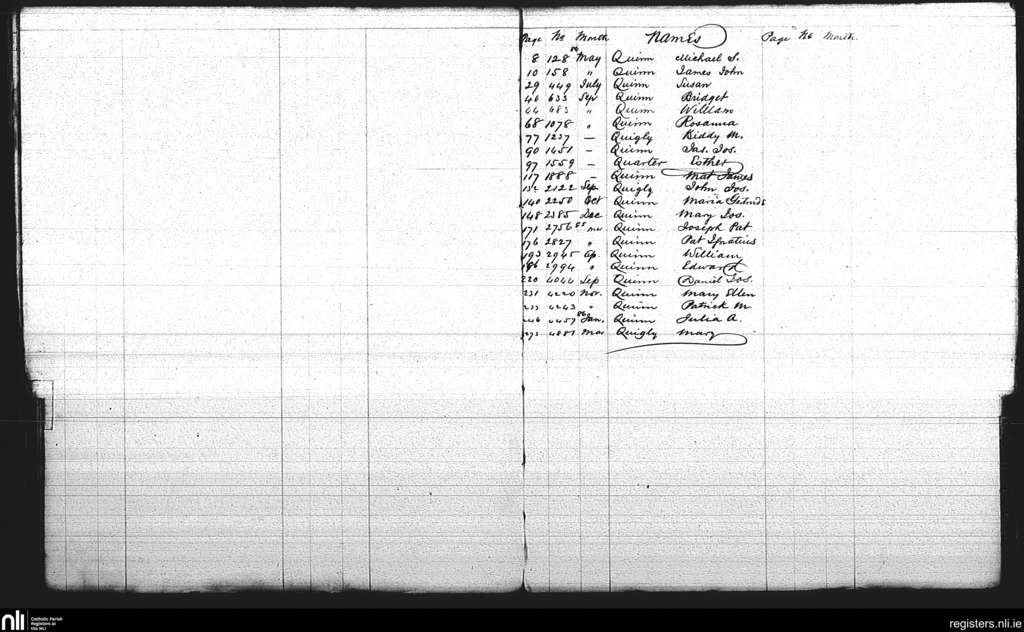 Page No Month Names Page No Month
8 128 86 May Quinn Michael S.
10 158 " Quinn James John
29 449 July Quinn Susan
40 633 Sep Quinn Bridget
44 683 " Quinn William
68 1078 " Quinn Rosanna
77 1237 — Quigly Biddy M.
90 1451 — Quinn Jas. Jos.
97 1559 — Quarter Esther
117 1888 — Quinn Mat James
132 2122 Sep Quigly John Jos.
140 2250 Oct Quinn Maria
148 2385 Dec Quinn Mary Jos.
171 2756 Quinn Joseph Pat
176 2827 " Quinn Pat Ignatius
193 2945 Ap. Quinn William
196 2994 " Quinn Edward
220 4044 Sep Quinn Daniel Jos.
231 4220 Nov. Quinn Mary Ellen
233 4243 " Quinn Patrick M.
246 4457 86 Jan. Quinn Julia A.
273 4887 Mar Quigly Mary
nli Catholic Parish
Registers at
the NLI
registers.nli.ie